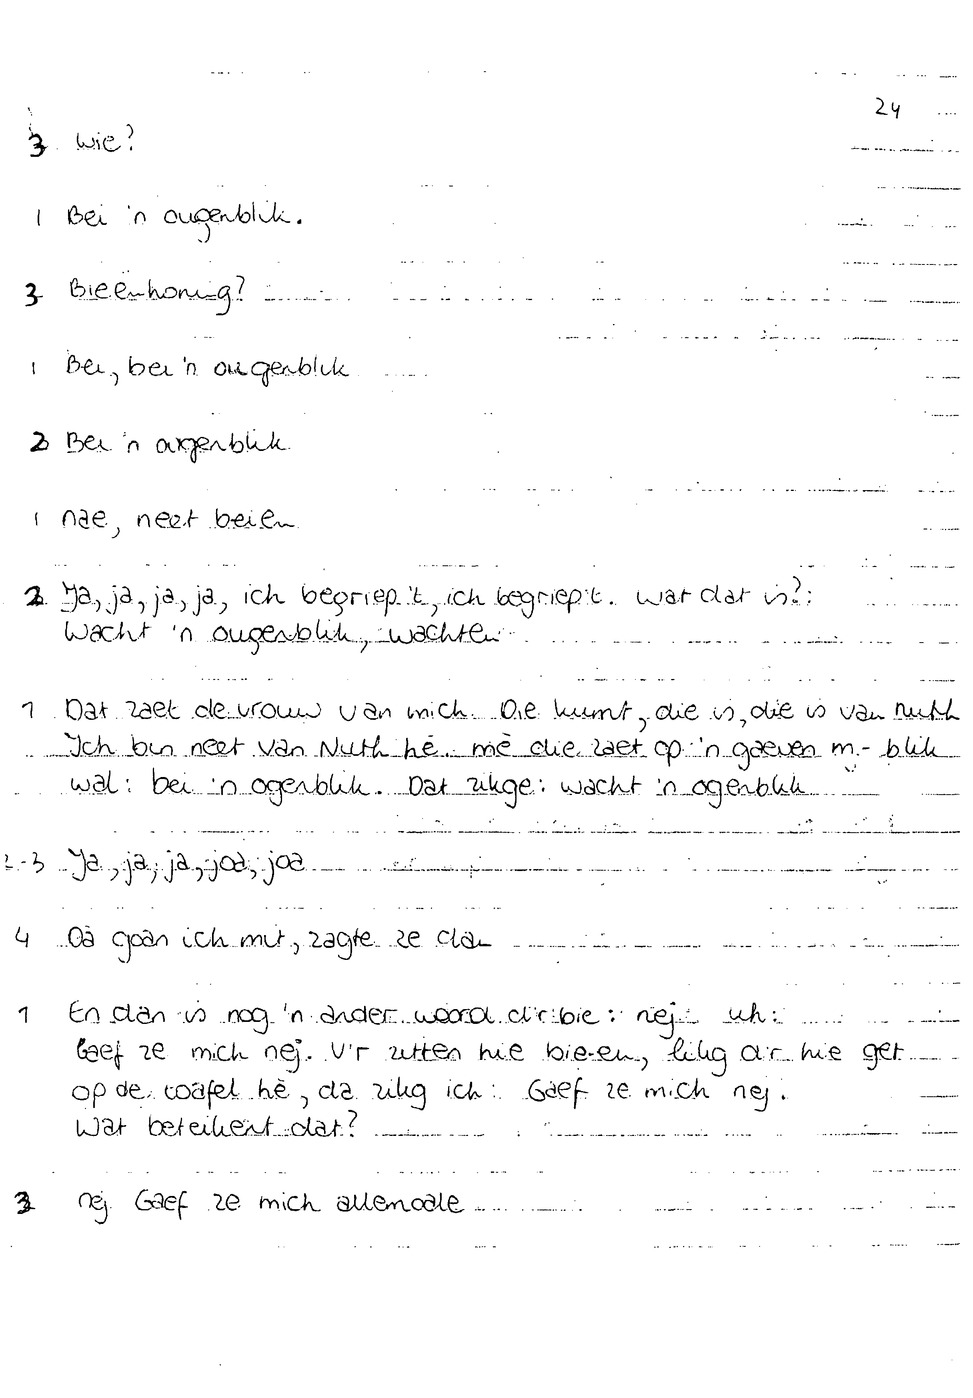 24
3 wie?
1 Bei 'n ougenblik.
3 Bieënhonig?
1 Bei, bei 'n ougenblik
2 Bei 'n ougenblik
1 nae, neet beien
2 Ja, ja, ja, ja, ich begriep 't, ich begriep 't. wat dat is?:
Wacht 'n ougenblik, wachten
1 Dat zaet de vrouw van mich. Die kumt, die is, die is van Nuth
Ich bin neet van Nuth hè. mè die zaet op 'n gaeven m.- blik
wal: bei 'n ogenblik. Dat zikge: wacht 'n ogenblik
2-3 Ja, ja, ja, joa, joa
4 Dà goan ich mit, zagte ze dan
1 En dan is nog 'n ander woord dr bie: nej. uh:
Gaef ze mich nej. V'r zitten hie bie-en, likg d'r hie get
op de toafel hè, da zikg ich: Gaef ze mich nej.
Wat beteikent dat?
3 nej Gaef ze mich allemoale